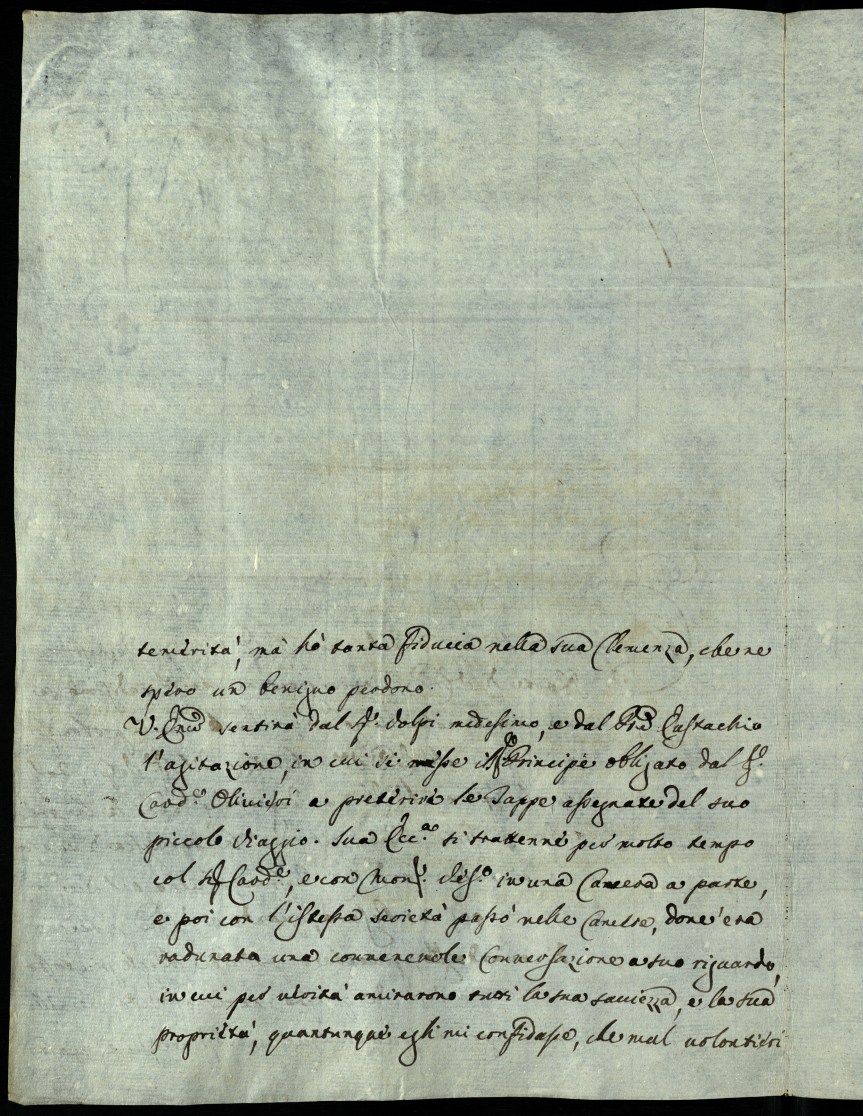 temerità, mà hò tanta fiducia nella sua Clemenza, che ne
spero un benigno perdono.
V. Em.za sentirà dal Sr. Volpi medesimo, e dal Pre Eustachio
l'agitazione, in cui si misse il Principe obligato dal Sr.
Card.e a preterire le Tappe assegnate del suo
piccolo viaggio. Sua Ecc.za si trattenne per molto tempo
col Sr Card.e, e con Mons.r in una Camera a parte,
e poi con l'istessa società passò nelle Camere, dove era
radunata una convenevole Conversazione a suo riguardo,
in cui per verità amirarono tutti la sua saviezza, e la sua
proprietà, quantunque egli mi confidasse, che mal volontieri